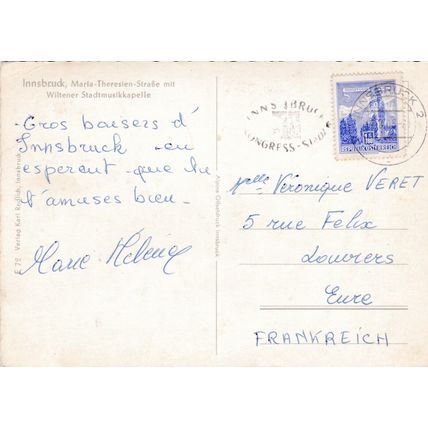 Innsbruck, Maria-Theresien-Straße mit
Wiltener Stadtmusikkapelle
Gros baisers d'
Innsbruck en
esperant que tu
t'amuses bien -
Marie Hélène
E 72 Verlag Karl Redlich, Innsbruck
Alpine Offsetdruck Innsbruck
INNSBRUCK
KONGRESS-STADT
INNSBRUCK 2
Melle Véronique VERET
5 rue Felix
Louviers
Eure
FRANKREICH